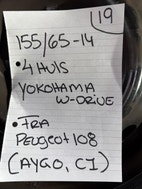 19
155/65-14
• 4 HULS
YOKOHAMA
W-DRIVE
• FRA
PEUGEOT 108
(AYGO, C1)